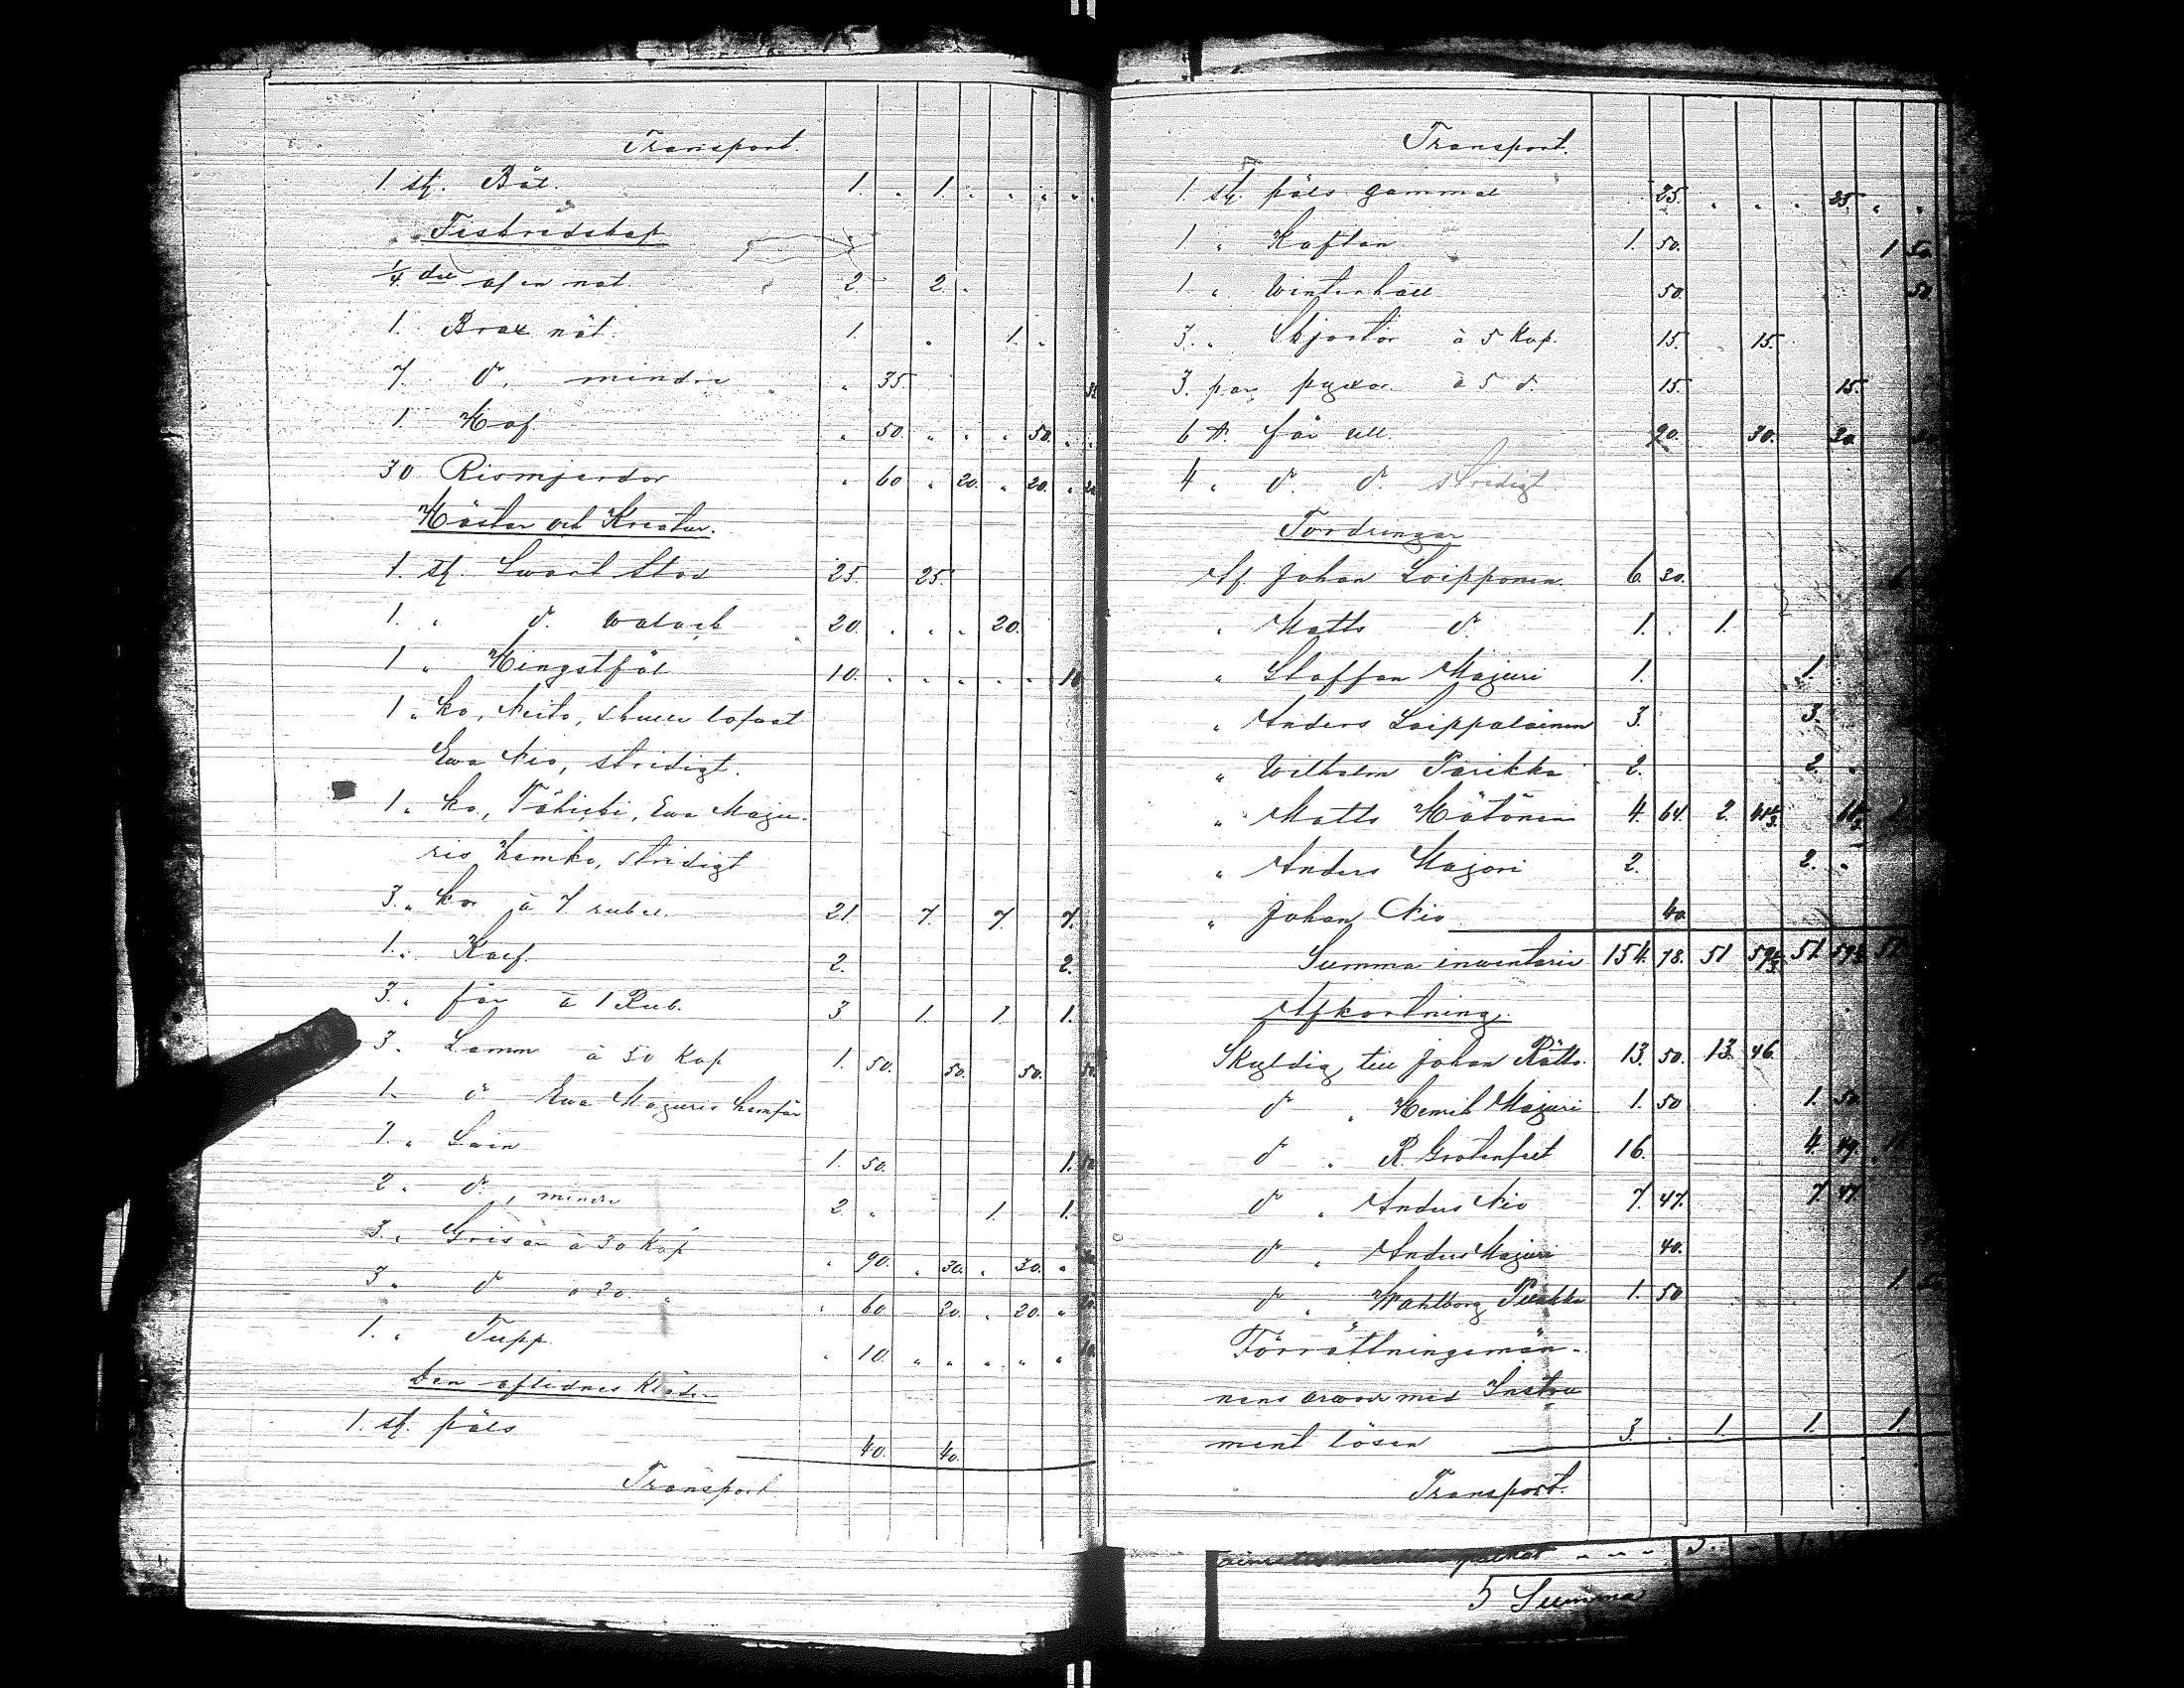 Transport.
1 st. Båt. 1. " 1. " " " "
Fiskredskap
1/4 del af en not 2. 2. "
1. Brax nät. 1. " 1. "
7 d:o, mindre " 35.
1. Haf. " 50. " " " 50. " "
30 Rismjerdor " 60 " 20. " 20. "
Hästar och Kreatur.
1. st. Swart Sto 25. 25.
1. " d:o walack 20. " " " 20.
1 " Hingstföl 10. " " " " " 10
1 " ko, Neito, lofvat
Ewa Nio, stridigt.
1 " ko, Ewa Maju-
ris hemko, stridigt
3. " kor à 7 rubel. 21. 7. 7. 7.
1. " Kalf. 2. 2.
3. " får à 1 Rub. 3 1. 1. 1.
3. Lamm à 50 kop 1. 50. 50. 50. 50.
1. d:o Ewa Majuris hemfår
1. " Svin 1. 50. 1. 50.
2. " d:o, mindre 2 " 1. 1.
3. " Grisar à 30 kop " 90. " 30. " 30. "
3 " d:o à 20. " " 60 20. " 20. "
1. " Tupp. " 10. " " " " " 10.
Den aflidnes kläder
1. st. päls 40. 40.
Transport
Transport.
1. st. päls gammal 25. " " " 25. " "
1 " Kaftan 1. 50. 1 50.
1 " Winterhall 50. 50
3. " Skjortor à 5 kop. 15. 15.
3. par pyxor à 5 d:o 15. 15.
6 får ull. 90. 30. 30.
4 " d:o d:o stridigt
Fordringar
Af Johan Loipponen 6. 30. 6
" Matts d:o 1. 1.
" Staffan Majuri 1. 1.
" Anders Loippalainen 3. 3.
" Wilhelm Parikka 2. 2. "
" Matts Hätönen 4. 64. 2.
" Anders Majori 2. 2. "
" Johan Nio 40.
Summa inventarie 154. 78. 51 51.
Afkortning.
Skyldig till Johan Rätts. 13. 50. 13. 46
d:o " Henrik Majuri 1. 50 1. 50
d:o " R. Grotenfelt 16. 4. 49.
d:o " Anders Nio 7. 47. 7. 47.
d:o " Anders Majuri 40.
d:o " Wahlborg 1. 50 1.
Förrättningsmän-
nens arwode med Instru
ment lösen 3. " 1. 1. 1.
Transport.
5 Summa